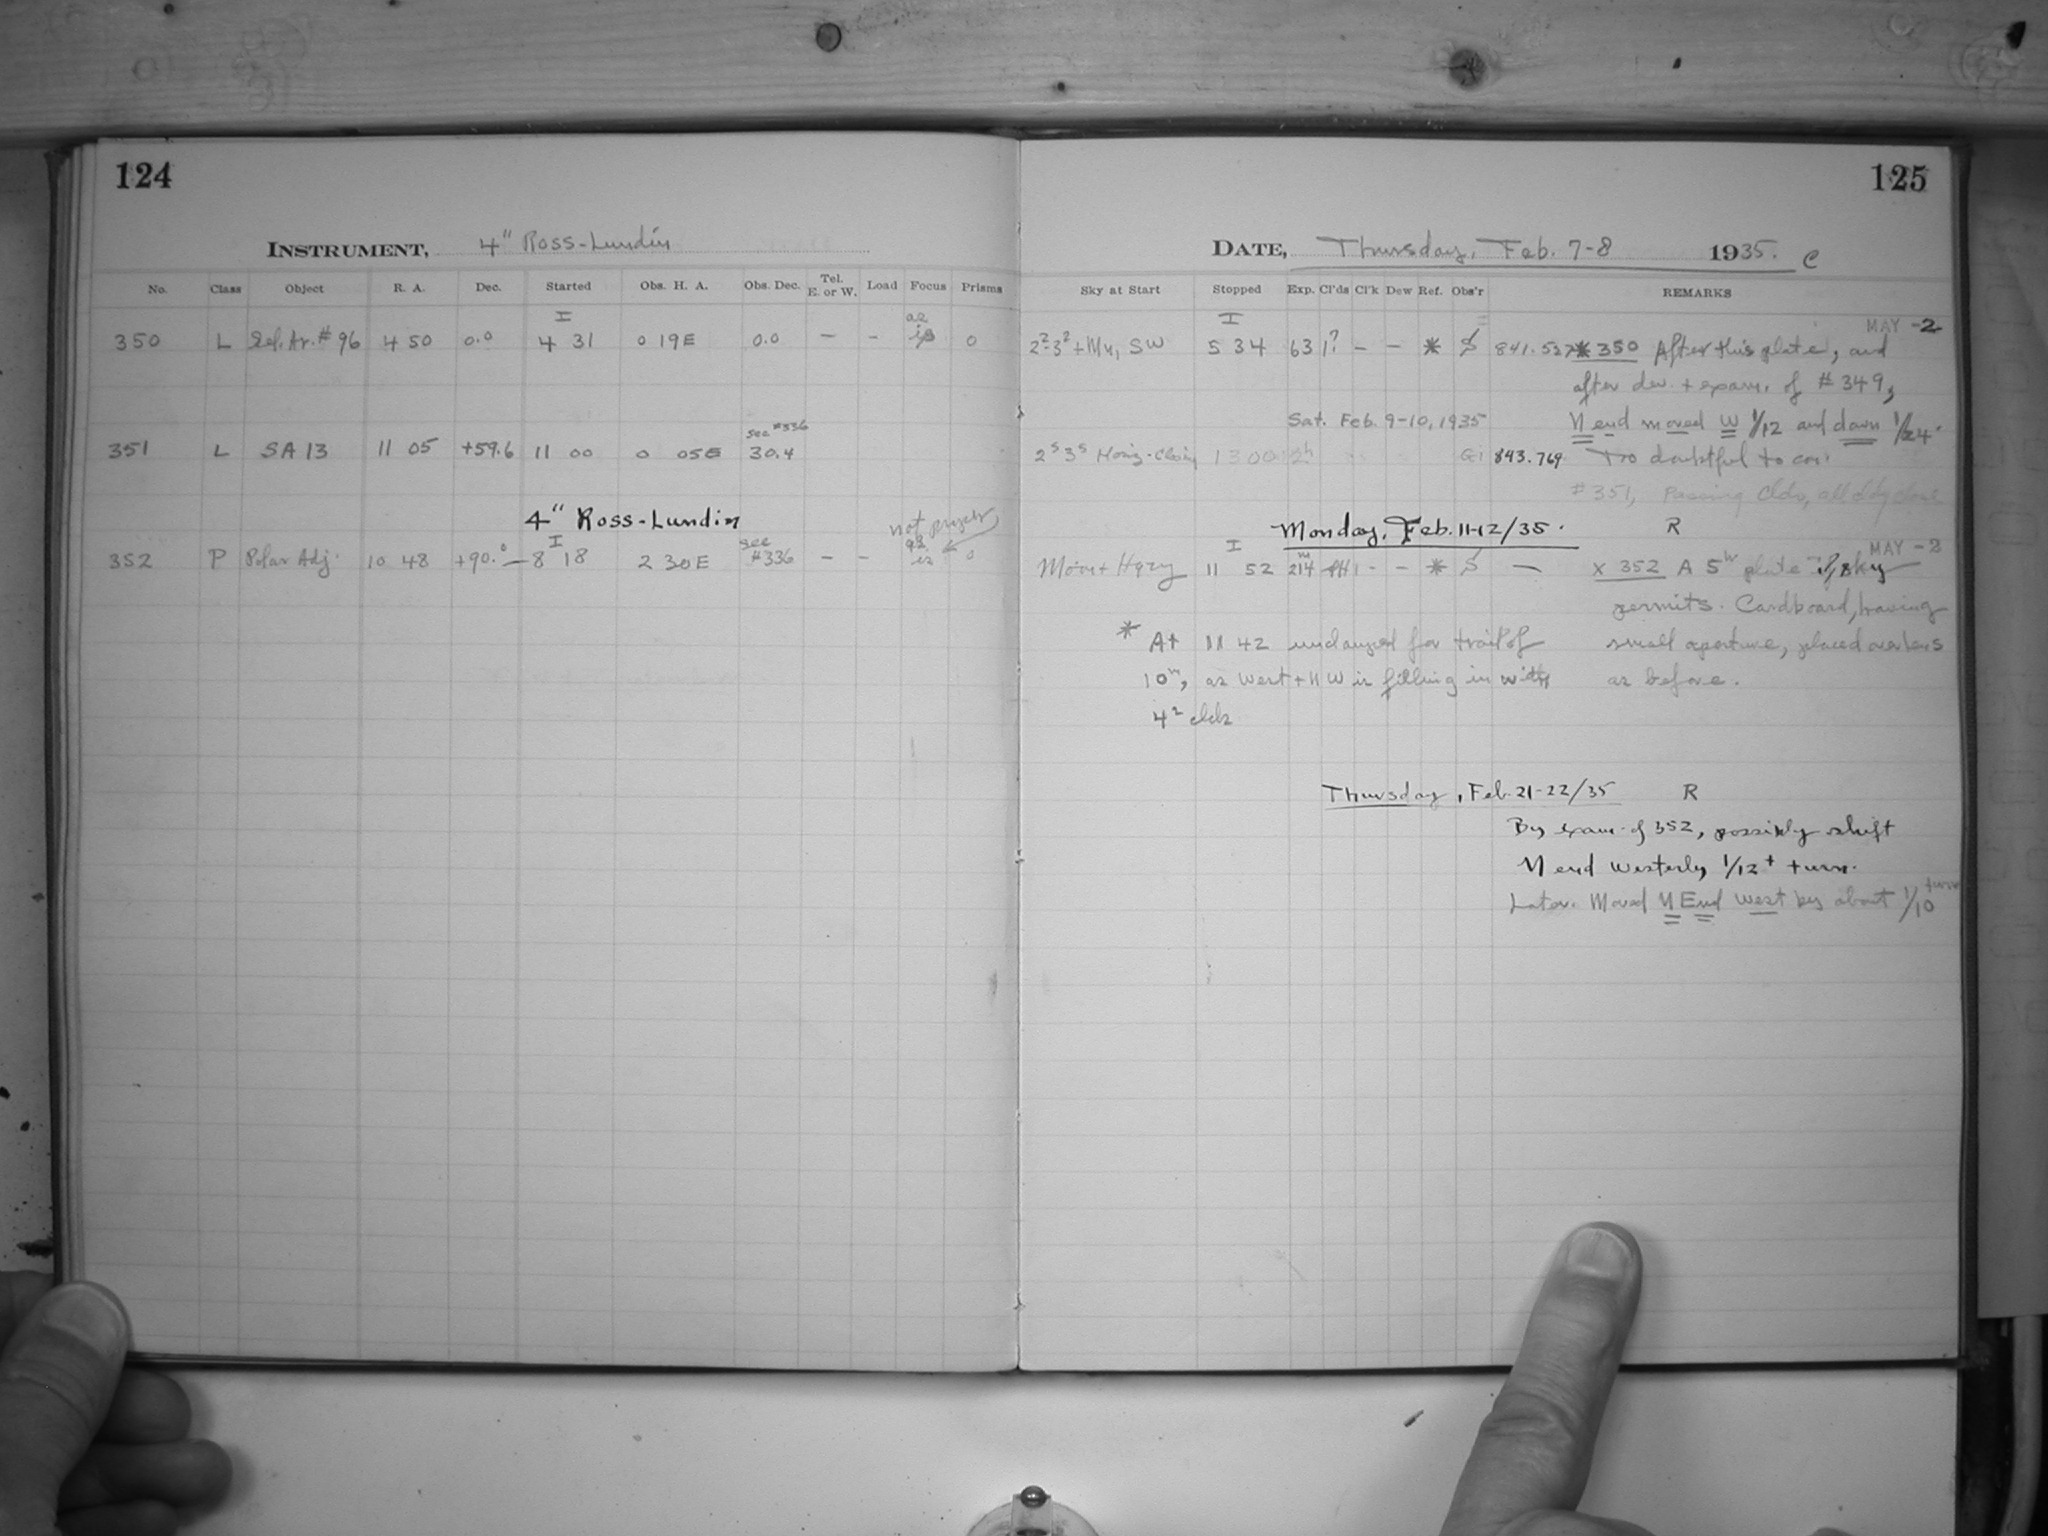 124
125
INSTRUMENT, 4" Ross-Lundin
DATE, Thursday, Feb. 7-8 1935. C
No. Class Object R. A. Dec. Started Obs. H. A. Obs. Dec. Tel. E. or W. Load Focus Prisms
Sky at Start Stopped Exp. Cl'ds Cl'k Dew Ref. Obs'r REMARKS
MAY -2
350 L Sel. Ar. # 96 4 50 0.0 I 4 31 0 19E 0.0 – – as is 0
I 5 34 63 1? – – * 841.537 * 350 After this plate, and
after dev. + exam. of # 349,
Sat. Feb. 9-10, 1935
N end moved W 1/12 and down 1/24.
351 L SA 13 11 05 +59.6 11 00 0 05E see #336 30.4
13 00 2h Gi 843.769 Too doubtful to
# 351, Passing Clds,
4" Ross-Lundin
Monday, Feb. 11-12/35. R
MAY -2
352 P Polar Adj. 10 48 +90.° — I 8 18 2 30E see #336 – – not proper as is 0
Moon + Hazy I 11 52 214 m – – * — x 352 A 5 plate if sky
permits. Cardboard, having
small aperture, placed over lens
as before.
* At 11 42 unclamped for trail of
10m, as West + NW is filling in with
4² clds
Thursday, Feb. 21-22/35 R
By exam. of 352, possibly shift
N end Westerly 1/12+ turn.
Later. Moved N End West by about 1/10 turn